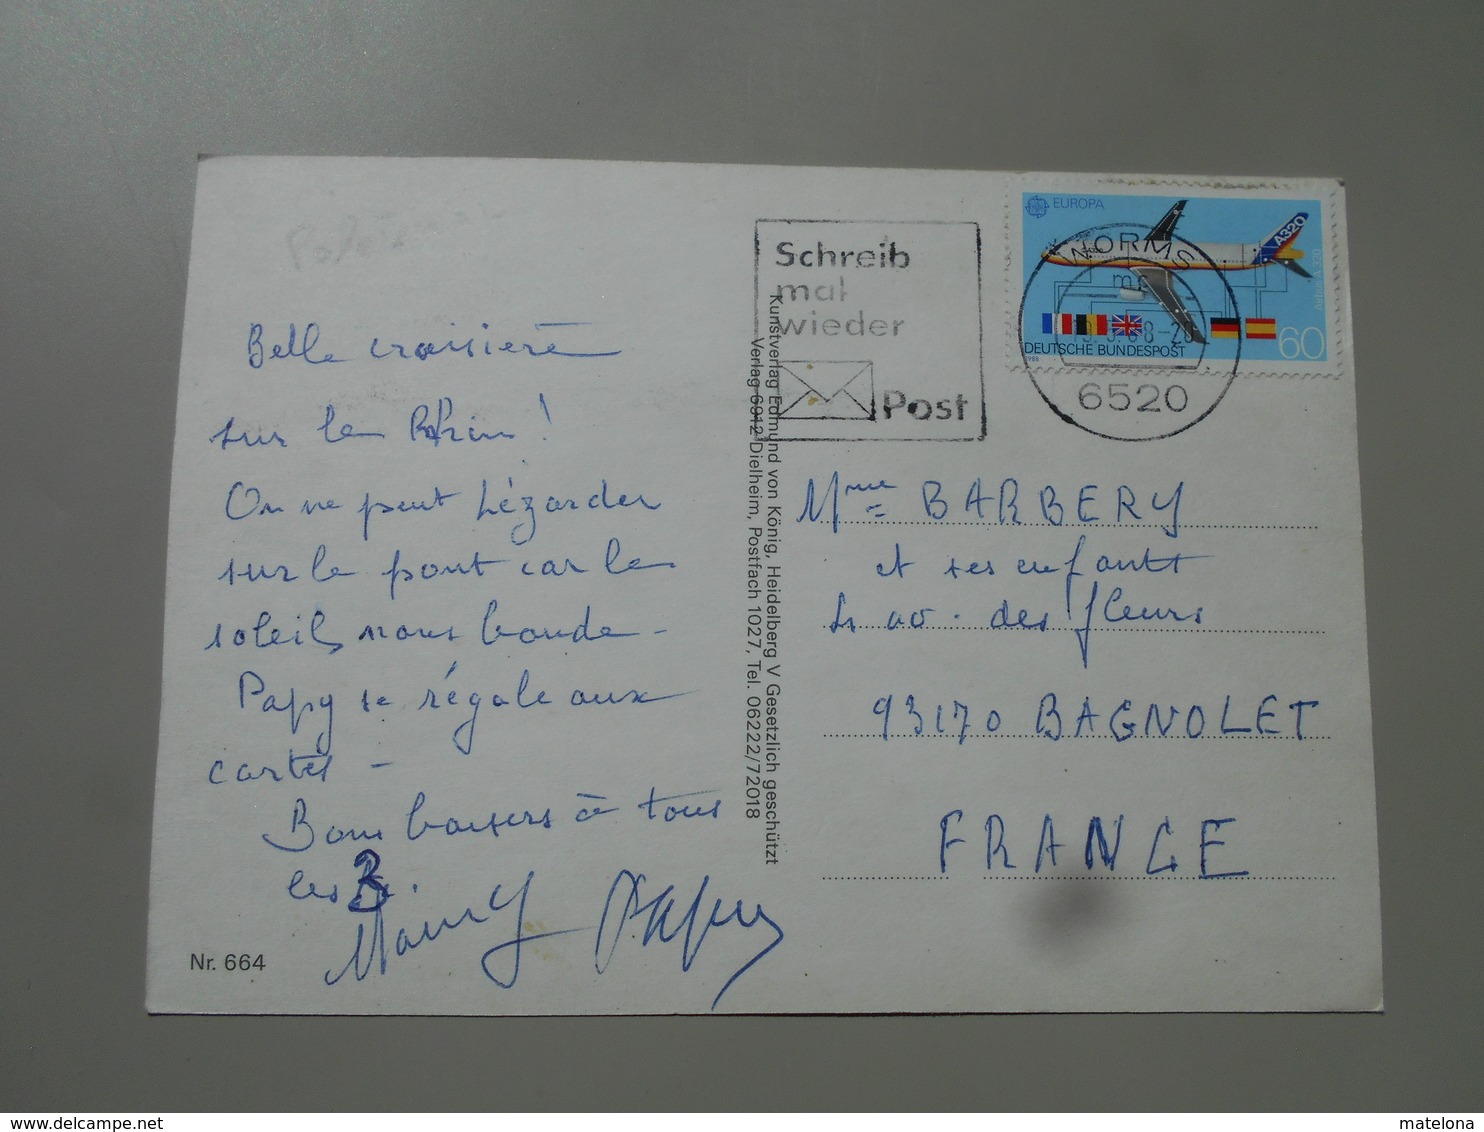 Belle croisière
sur le Rhin !
On ne peut lézarder
sur le pont car le
soleil nous boude -
Papy se régale aux
cartes -
Bons baisers à tous
les 3.
Mamy Papy
Nr. 664
Kunstverlag Edmund von König, Heidelberg V Gesetzlich geschützt
Verlag 6912 Dielheim, Postfach 1027, Tel. 06222/72018
Schreib
mal
wieder
Post
EUROPA
A320
Airbus A 320
DEUTSCHE BUNDESPOST
1988
60
WORMS
6520
Mme BARBERY
et ses enfants
av. des fleurs
93170 BAGNOLET
FRANCE
www.delcampe.net
matelona